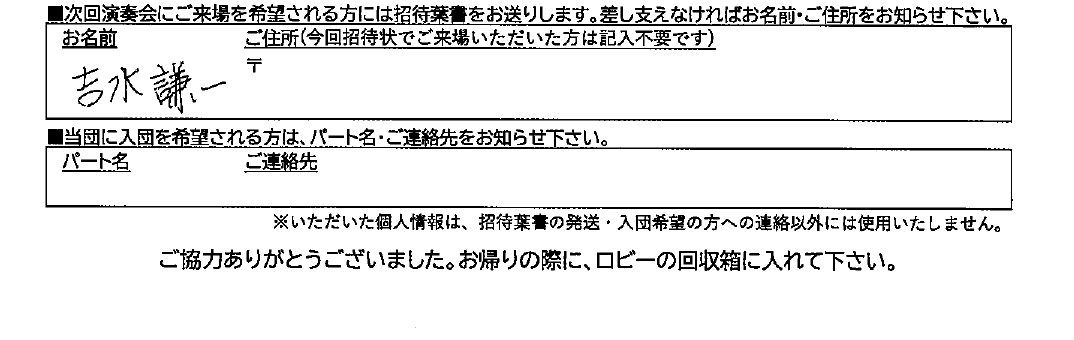 ■次回演奏会にご来場を希望される方には招待葉書をお送りします。差し支えなければお名前・ご住所をお知らせ下さい。
お名前 ご住所(今回招待状でご来場いただいた方は記入不要です)
〒
吉水謙一
■当団に入団を希望される方は、パート名・ご連絡先をお知らせ下さい。
パート名 ご連絡先
※いただいた個人情報は、招待葉書の発送・入団希望の方への連絡以外には使用いたしません。
ご協力ありがとうございました。お帰りの際に、ロビーの回収箱に入れて下さい。